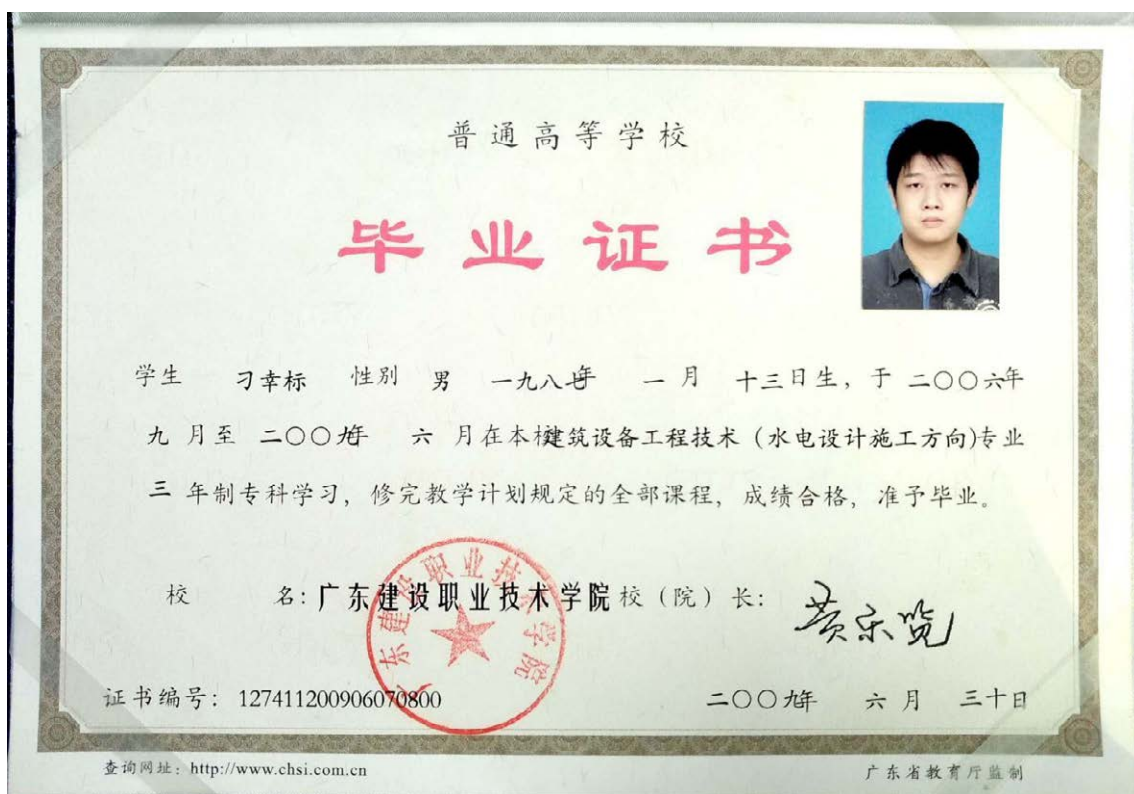 普通高等学校
毕业证书
学生 刁幸标 性别 男 一九八七年 一月 十三日生，于 二〇〇六年
九 月至 二〇〇九年 六 月在本校建筑设备工程技术（水电设计施工方向)专业
三 年制专科学习，修完教学计划规定的全部课程，成绩合格，准予毕业。
校 名：广东建设职业技术学院 校（院）长：
广东建设职业技术学院
证书编号：127411200906070800 二〇〇九年 六月 三十日
查询网址：http://www.chsi.com.cn 广东省教育厅监制